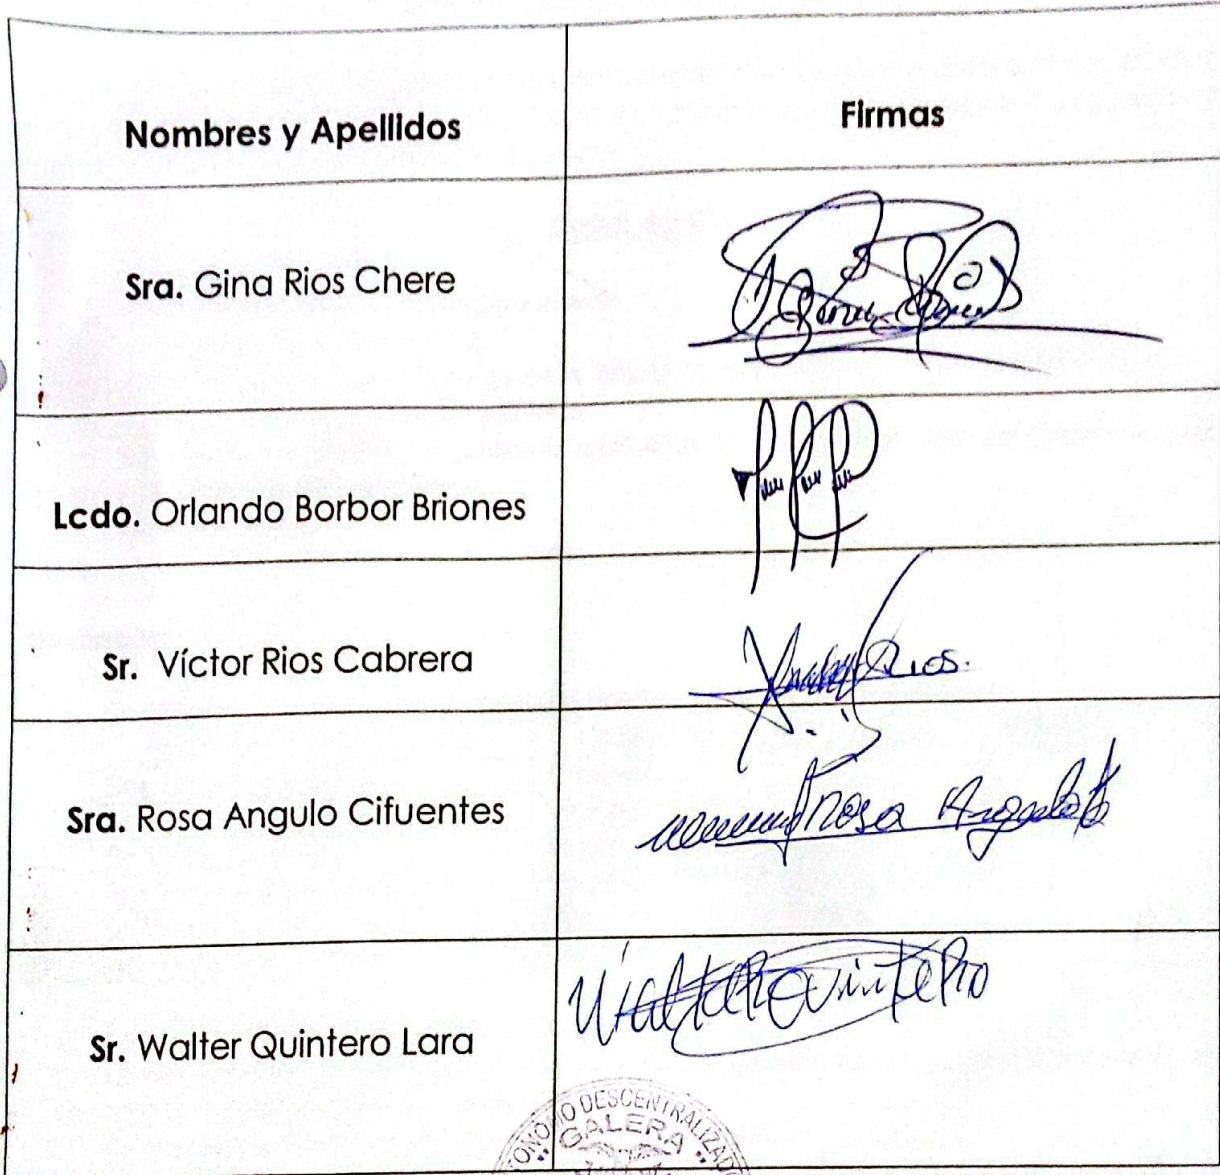 Nombres y Apellidos
Firmas
Sra. Gina Rios Chere
Lcdo. Orlando Borbor Briones
Sr. Víctor Rios Cabrera
Rios.
Sra. Rosa Angulo Cifuentes
Rosa Angulo
Sr. Walter Quintero Lara
Walter Quintero
DESCENTRALIZADO
GALERA